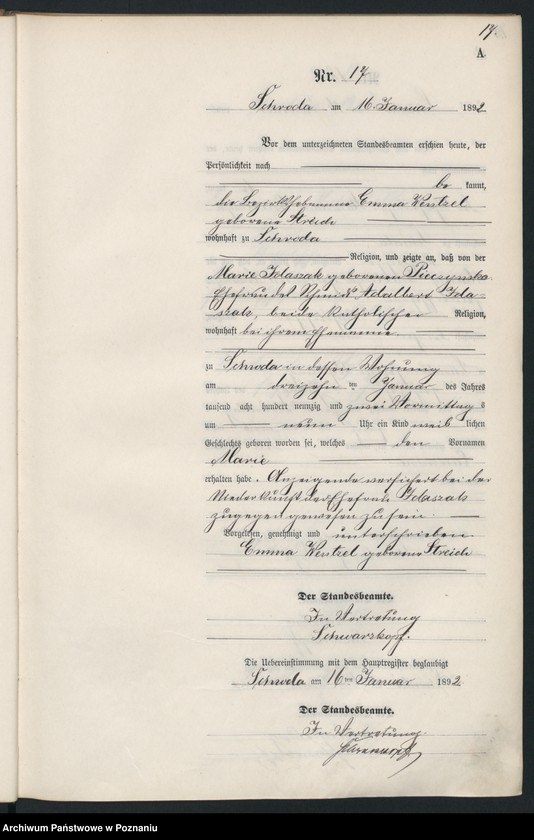 17.
A
Nr. 17
Schroda am 16. Januar 1892
Vor dem unterzeichneten Standesbeamten erschien heute, der
Persönlichkeit nach
be kannt,
die Bezirkshebamme Emma Wentzel
geborene Streich
wohnhaft zu Schroda
Religion, und zeigte an, daß von der
Marie Idaszak geborenen
Ehefrau des Schmids Adalbert Ida-
szak, beide katholischer Religion,
wohnhaft bei ihrem Ehemanne
zu Schroda in dessen Wohnung
am dreizehnten Januar des Jahres
tausend acht hundert neunzig und zwei Vormittags
um neun Uhr ein Kind weiblichen
Geschlechts geboren worden sei, welches den Vornamen
Marie
erhalten habe. Anzeigende versichert bei der
Niederkunft der Ehefrau Idaszak
zugegen gewesen zu sein.
Vorgelesen, genehmigt und unterschrieben
Emma Wentzel geborene Streich
Der Standesbeamte.
In Vertretung
Schwarzkopf.
Die Uebereinstimmung mit dem Hauptregister beglaubigt
Schroda am 16ten Januar 1892.
Der Standesbeamte.
In Vertretung.
Archiwum Państwowe w Poznaniu